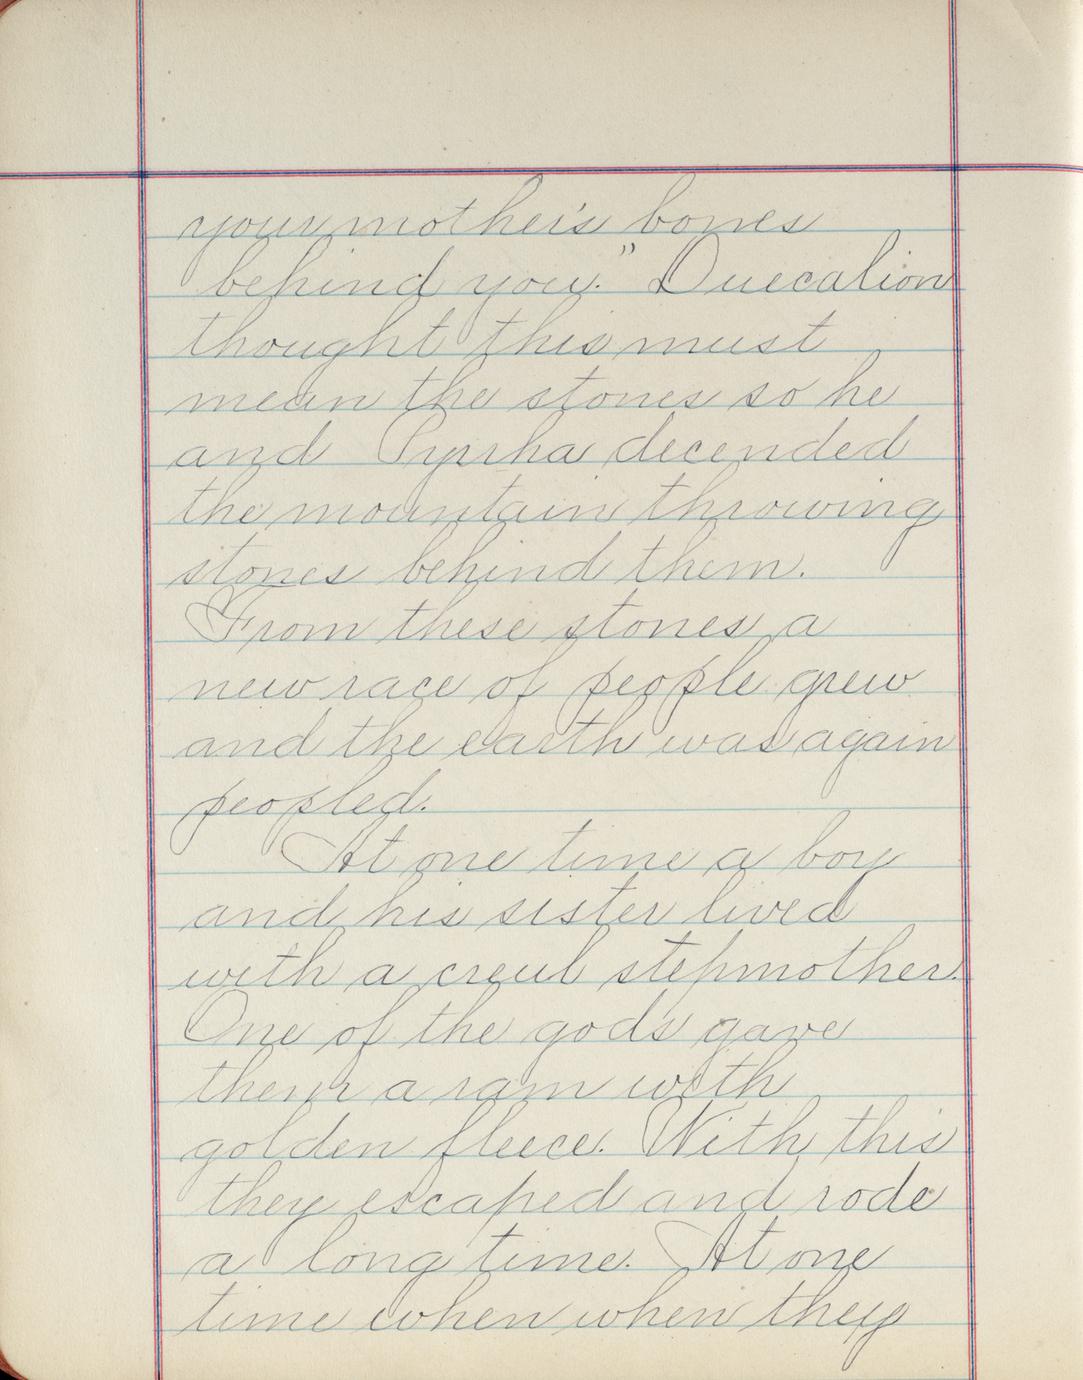 your mother's bones
behind you." Duecalion
thought this must
mean the stones so he
and Pyrrha decended
the mountain throwing
stones behind them.
From these stones a
new race of people grew
and the earth was again
peopled.
At one time a boy
and his sister lived
with a creul stepmother.
One of the god's gave
them a ram with
golden fleece. With this
they escaped and rode
a long time. At one
time when when they